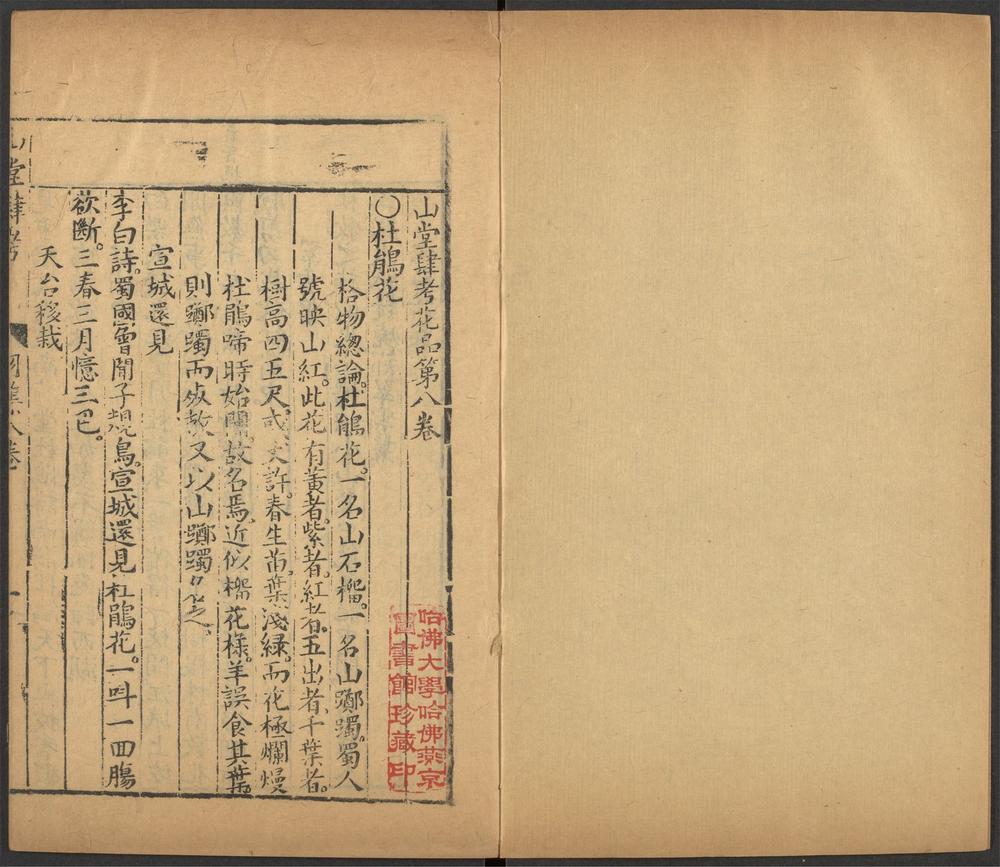 山堂肆考花品第八卷
○杜鵑花
格物總論。杜鵑花。一名山石榴。一名山躑躅。蜀人
號映山紅。此花有黃者。紫者。紅者。五出者。千葉者。
樹高四五尺。或丈許。春生苗葉淺緑。而花極爛熳
杜鵑啼時始開。故名焉。近似榴花樣。羊誤食其葉
則躑躅而
又以山躑躅名之。
宣城還見
李白詩。蜀國曾聞子規鳥。宣城還見杜鵑花。一呌一回腸
欲斷。三春三月憶三巴。
天台移栽
山堂肆考
八卷
哈佛大學哈佛燕京
圖書館珍藏印